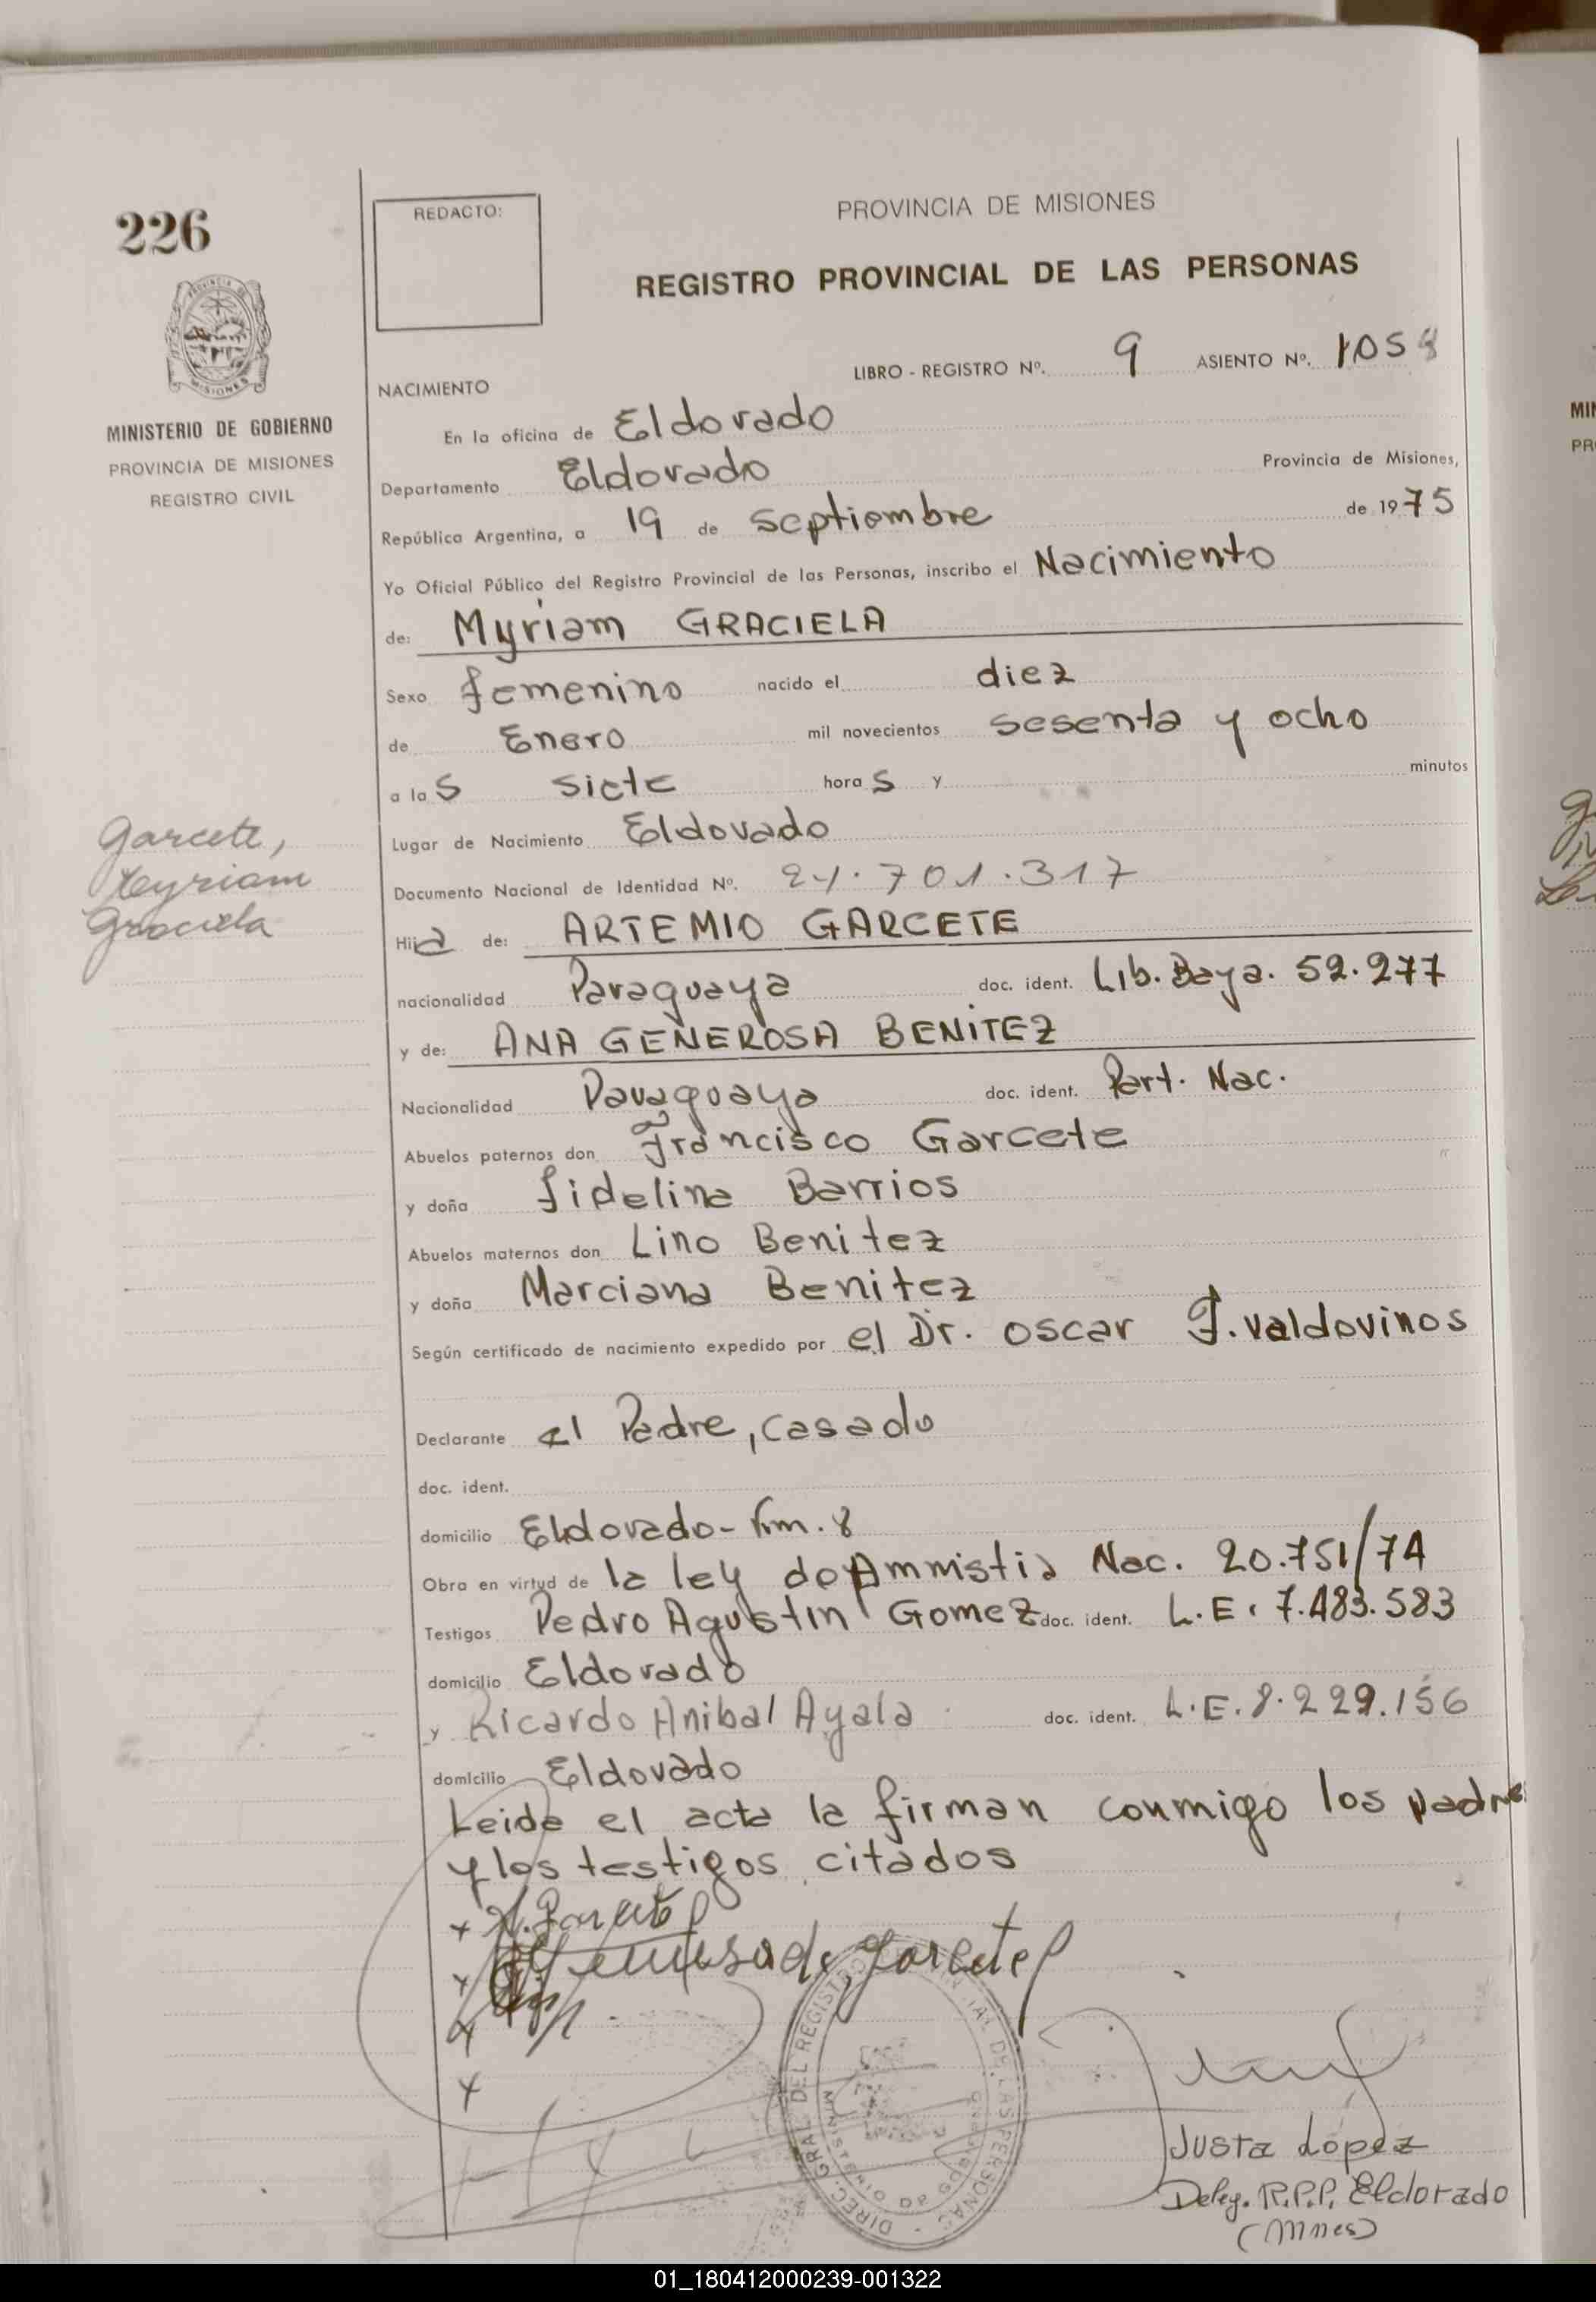 226
REDACTO:
PROVINCIA DE MISIONES
REGISTRO PROVINCIAL DE LAS PERSONAS
MINISTERIO DE GOBIERNO
PROVINCIA DE MISIONES
REGISTRO CIVIL
NACIMIENTO LIBRO - REGISTRO Nº. 9 ASIENTO Nº. 1058
En la oficina de Eldorado
Departamento Eldorado Provincia de Misiones,
República Argentina, a 19 de Septiembre de 1975
Yo Oficial Público del Registro Provincial de las Personas, inscribo el Nacimiento
de: Myriam GRACIELA
Sexo femenino nacido el diez
de Enero mil novecientos sesenta y ocho
a las siete horas y minutos
Lugar de Nacimiento Eldorado
Garcete,
Myriam
Graciela
Documento Nacional de Identidad Nº. 21.701.317
Hija de: ARTEMIO GARCETE
nacionalidad Paraguaya doc. ident. Lib. Baya. 52.277
y de: ANA GENEROSA BENITEZ
Nacionalidad Paraguaya doc. ident. Part. Nac.
Abuelos paternos don Francisco Garcete
y doña fidelina Barrios
Abuelos maternos don Lino Benitez
y doña Marciana Benitez
Según certificado de nacimiento expedido por el Dr. Oscar F. valdovinos
Declarante el Padre, casado
doc. ident.
domicilio Eldorado - Km. 8
Obra en virtud de la ley de Amnistia Nac. 20.751/74
Testigos Pedro Agustin Gomez doc. ident. L.E. 7.483.583
domicilio Eldorado
y Ricardo Anibal Ayala doc. ident. L.E. 8.229.156
domicilio Eldorado
Leida el acta la firman conmigo los padres
y los testigos citados
x A. Garcete
x Generosa de Garcete
x
x
DIREC. GRAL DEL REGISTRO PROVINCIAL DE LAS PERSONAS
MINISTERIO DE GOBIERNO
Justa López
Deleg. R.P.P. Eldorado
(Mnes)
01_180412000239-001322